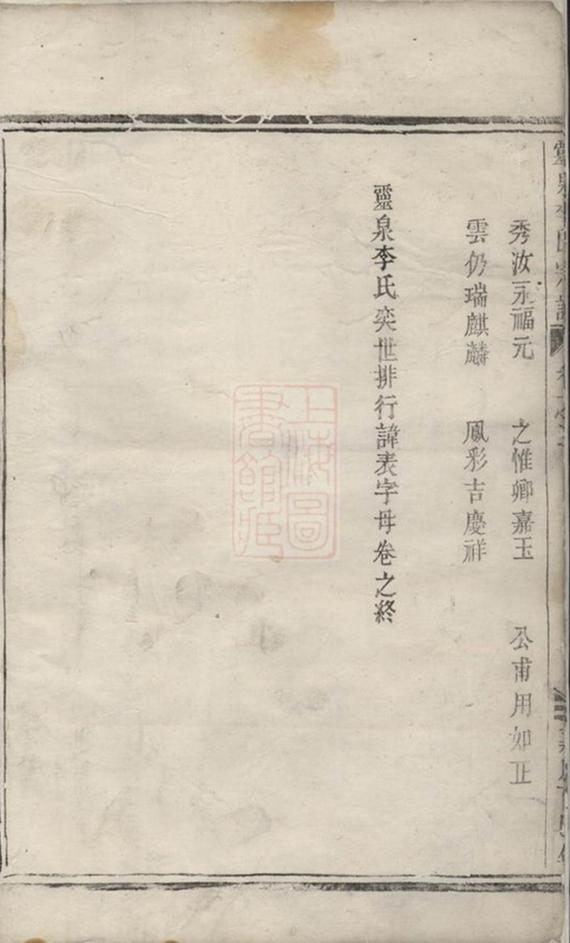 秀汝永福元 之惟卿嘉玉 公甫用如正
雲仍瑞麒麟 鳳彩吉慶祥
靈泉李氏奕世排行諱表字母卷之終
上海圖書館藏